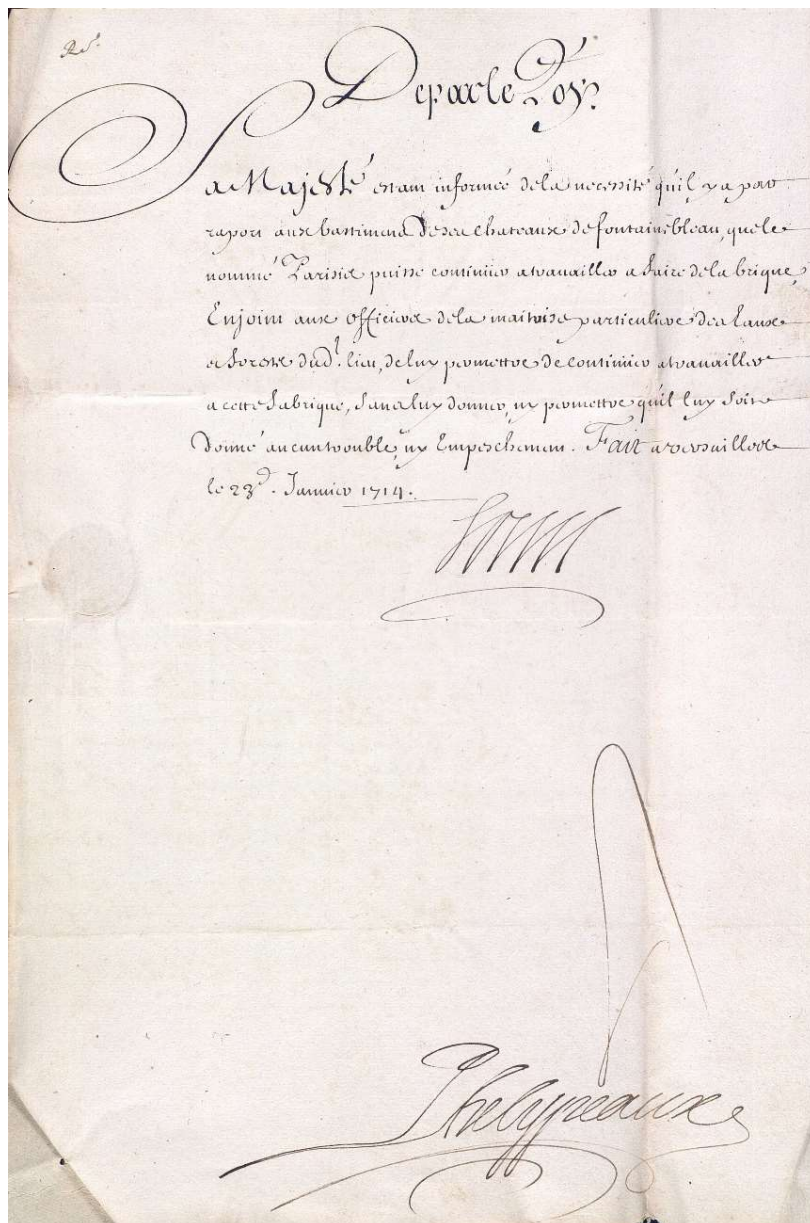 De par le Roy
Sa Majesté estant informée de la necessité qu'il y a par
raport aux bastimens de ses chateaux de fontainebleau, que le
nommé Parisis puisse continuer a travailler a faire de la brique,
Enjoint aux officiers de la maitrise particuliere des Eaux
et forets dud.t lieu, de luy permettre de continuer a travailler
a cette fabrique, sans luy donner, ny permettre qu'il luy soit
donné aucun trouble ny Empeschement. Fait a versailles
le 23.e Janvier 1714.
Louis
Phelypeaux